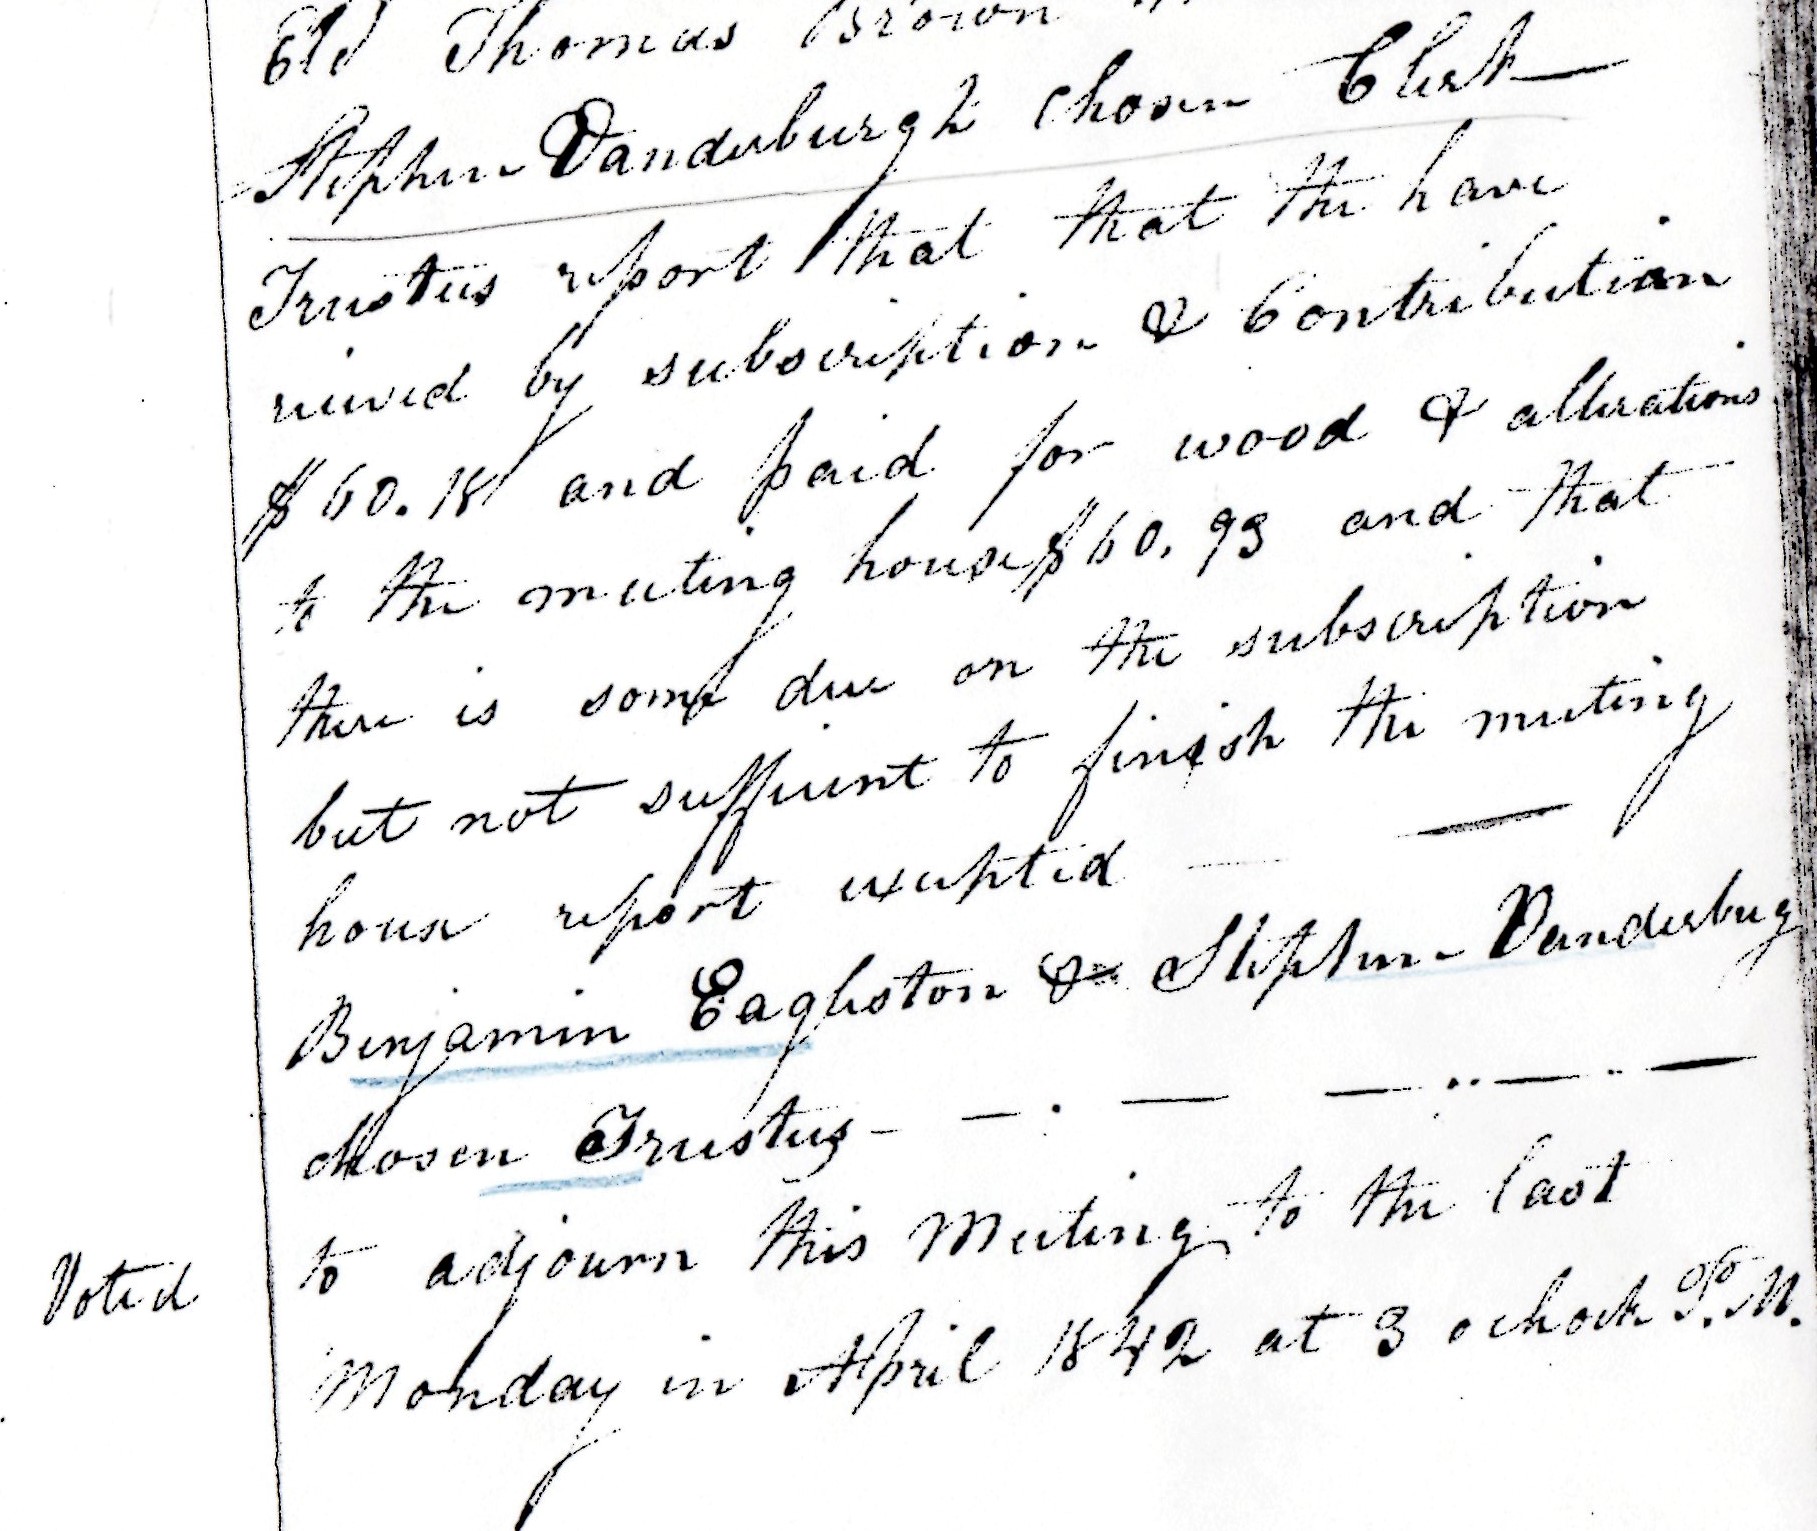 Eld Thomas Brown
Stephen Vanderburgh chosen Clerk
Trustees report that that the have
recieved by subscription & Contribution
$60.18 and paid for wood & allterations
to the meeting house $60.93 and that
there is some due on the subscription
but not suffient to finish the meeting
house report excepted
Benjamin Eagleston & Stephen Vanderbug
chosen Trustees
Voted to adjourn this Meeting to the last
Monday in April 1842 at 3 oclock P.M.